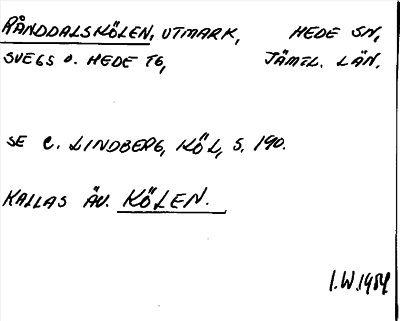 RÅNDDALSKÖLEN, UTMARK, HEDE SN,
SVEGS O. HEDE TG, JÄMTL. LÄN.
SE C. LINDBERG, KÖL, S. 190.
KALLAS ÄV. KÖLEN.
I.W. 1954